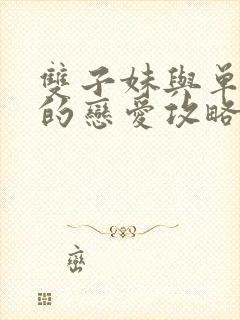 雙子妹與單
的戀愛攻略
巒